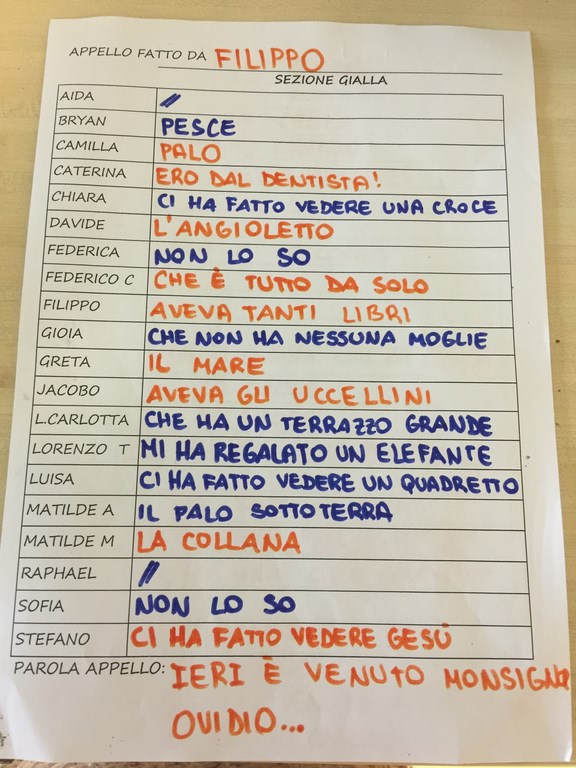 APPELLO FATTO DA FILIPPO
SEZIONE GIALLA
AIDA //
BRYAN PESCE
CAMILLA PALO
CATERINA ERO DAL DENTISTA!
CHIARA CI HA FATTO VEDERE UNA CROCE
DAVIDE L'ANGIOLETTO
FEDERICA NON LO SO
FEDERICO C CHE È TUTTO DA SOLO
FILIPPO AVEVA TANTI LIBRI
GIOIA CHE NON HA NESSUNA MOGLIE
GRETA IL MARE
JACOBO AVEVA GLI UCCELLINI
L.CARLOTTA CHE HA UN TERRAZZO GRANDE
LORENZO T MI HA REGALATO UN ELEFANTE
LUISA CI HA FATTO VEDERE UN QUADRETTO
MATILDE A IL PALO SOTTOTERRA
MATILDE M LA COLLANA
RAPHAEL //
SOFIA NON LO SO
STEFANO CI HA FATTO VEDERE GESÙ
PAROLA APPELLO: IERI È VENUTO MONSIGNOR
OVIDIO...